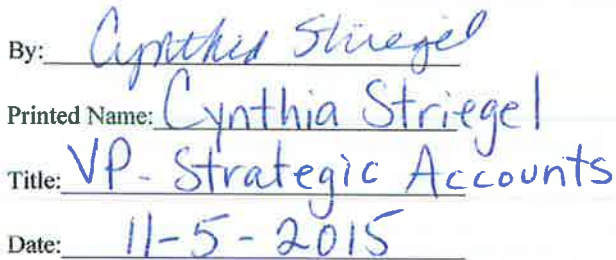 By: Cynthia Striegel
Printed Name: Cynthia Striegel
Title: VP- Strategic Accounts
Date: 11-5-2015